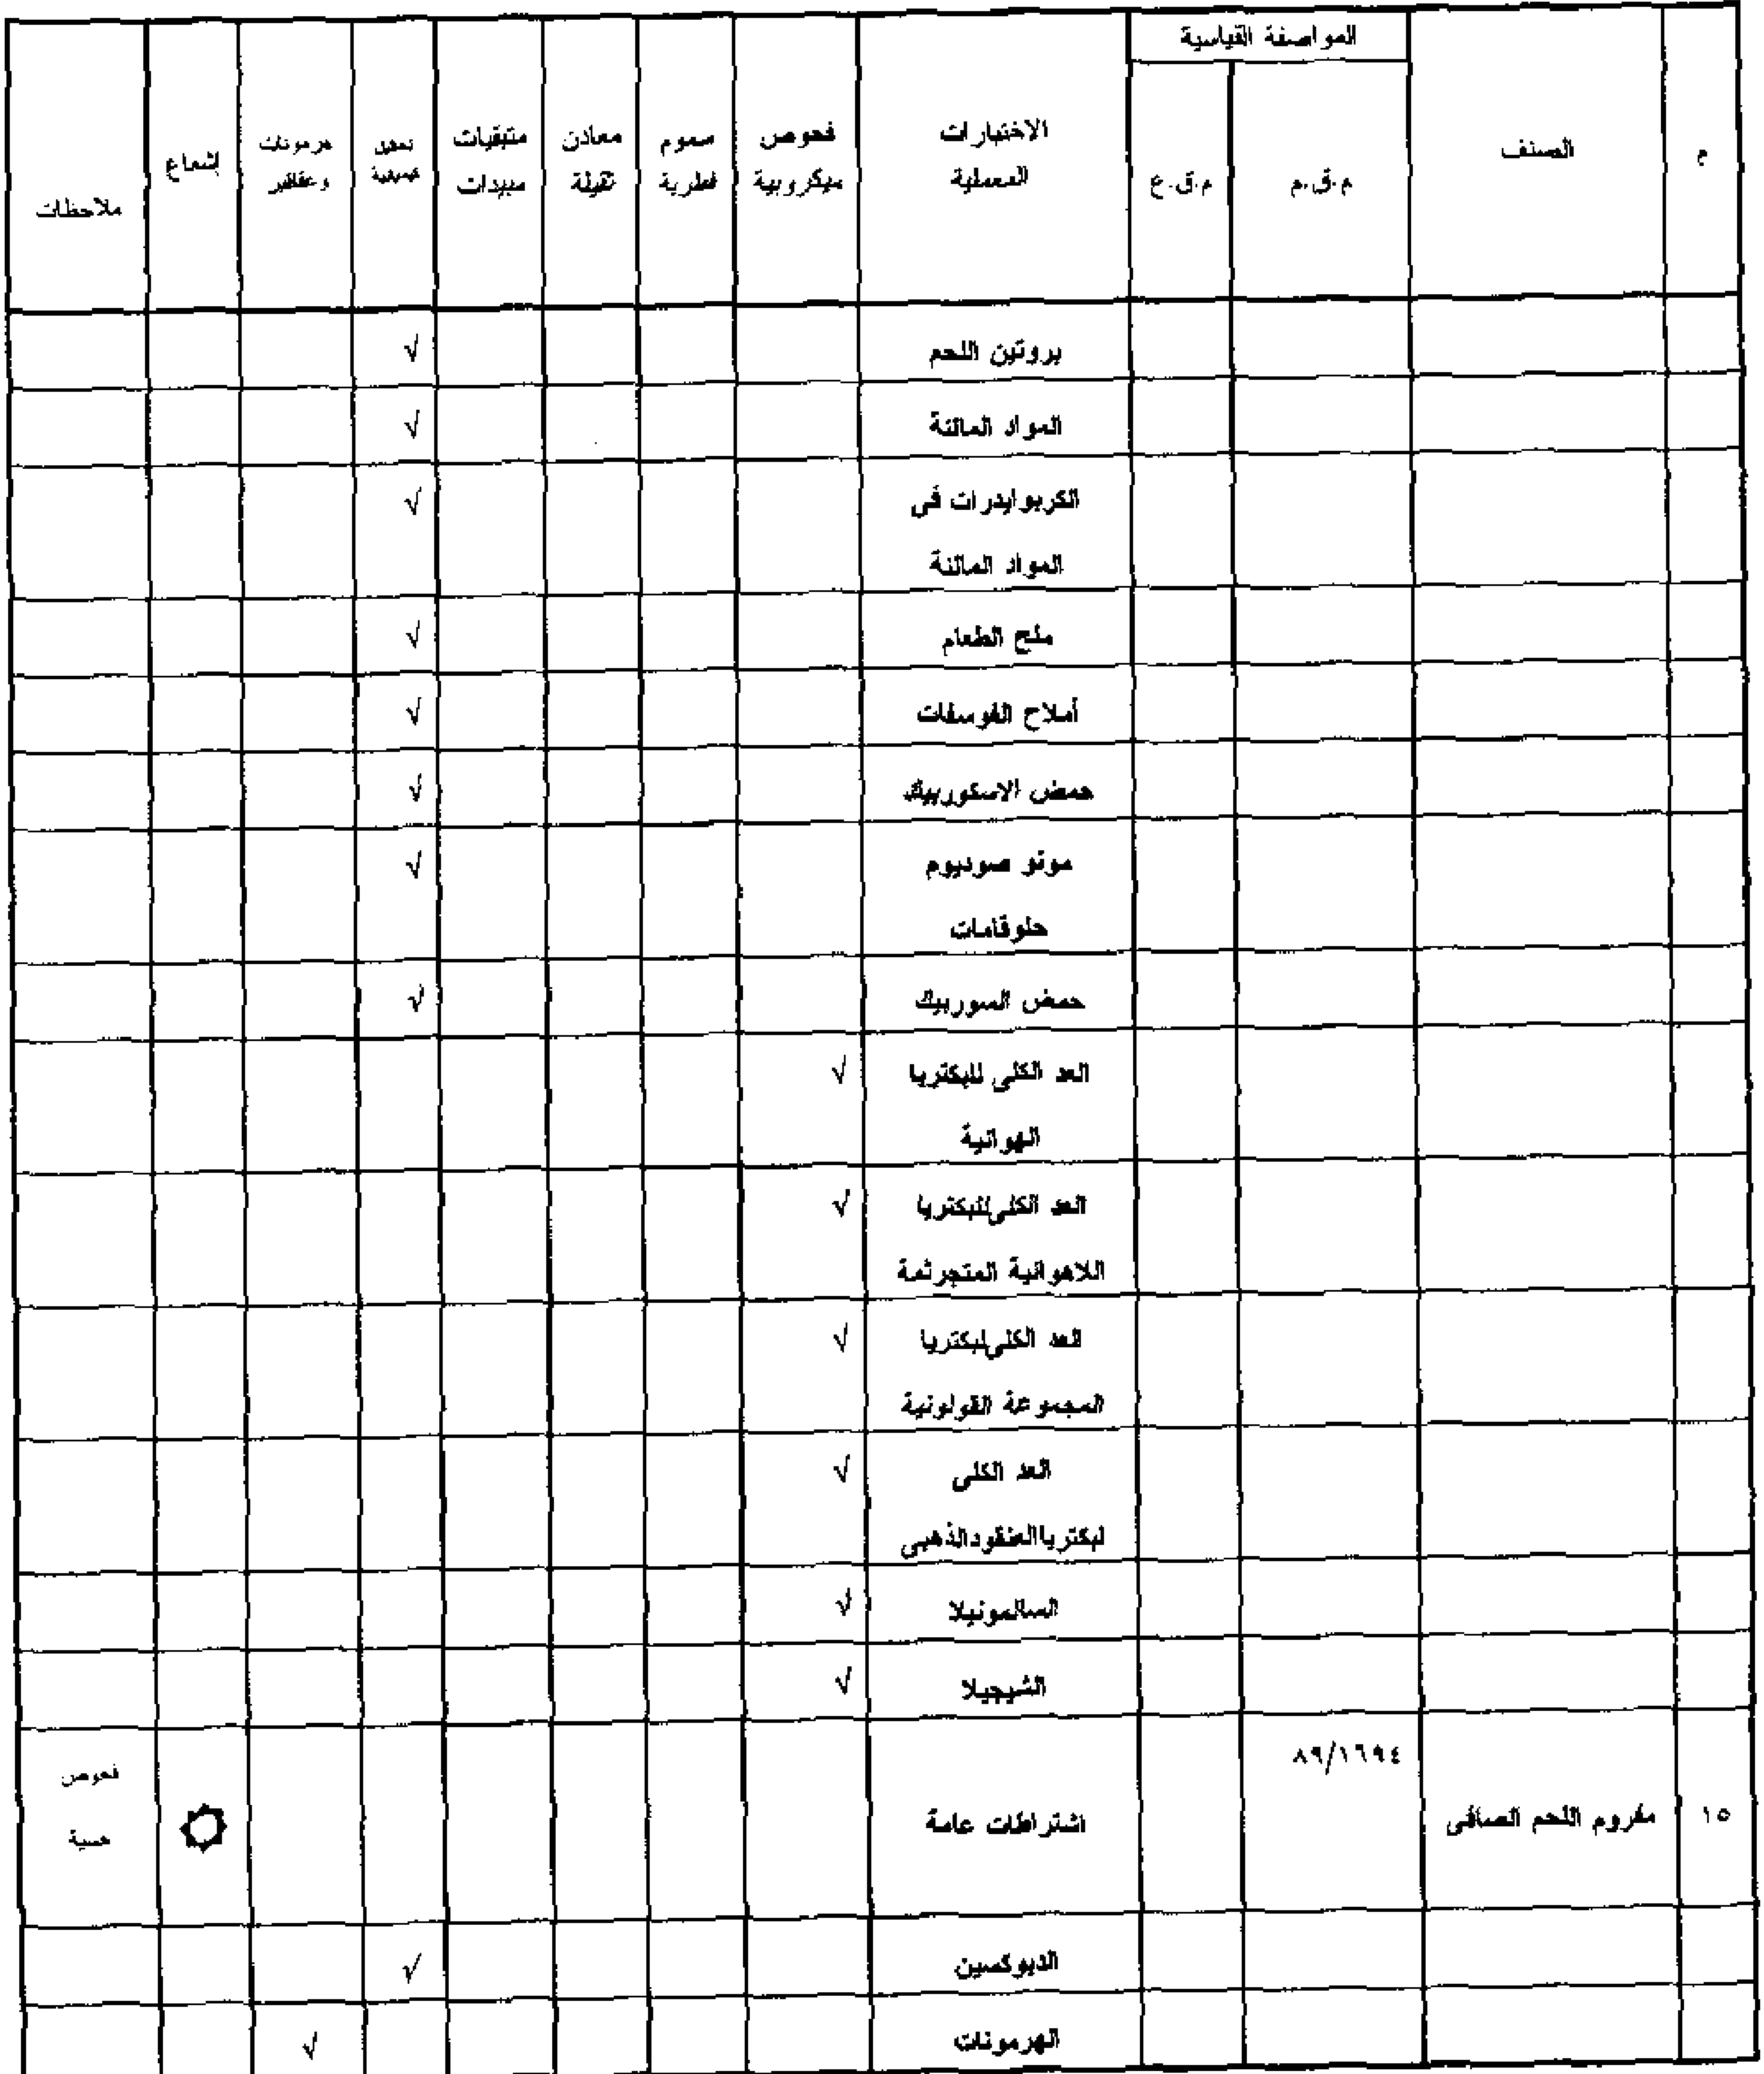 المواصفة القياسية
م
الصنف
م.ق.م
م.ق.ع
الاختبارات
المعملية
فحوص
ميكروبية
سموم
فطرية
معادن
ثقيلة
متبقيات
مبيدات
هرمونات
وعقاقير
إشعاع
ملاحظات
بروتين اللحم √
المواد المالئة √
الكربوايدرات فى √
المواد المالئة
ملح الطعام √
أملاح الفوسفات √
حمض الاسكوربيك √
مونو صوديوم √
جلوتامات
حمض السوربيك √
العد الكلى للبكتريا √
الهوائية
العد الكلى للبكتريا √
اللاهوائية المتجرثمة
العد الكلى لبكتريا √
المجموعة القولونية
العد الكلى √
لبكتريا العنقود الذهبى
السالمونيلا √
الشيجيلا √
١٥ مفروم اللحم الصافى ٨٩/١٦٩٤ اشتراطات عامة فحوص
حسية
الديوكسين √
الهرمونات √